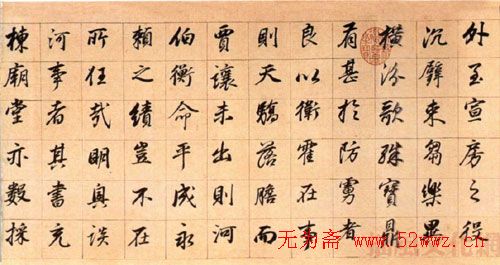 外至宣房之役
沉璧来芻樂畢
橫汾歌殊寶鼎
有甚於防虜者
良以衛霍在事
則天驕落膽而
賈讓未出則河
伯衡命平成永
賴之績豈不在
所任哉明興談
河事者其書充
棟廟堂亦數採
无为斋 www.52wwz.cn